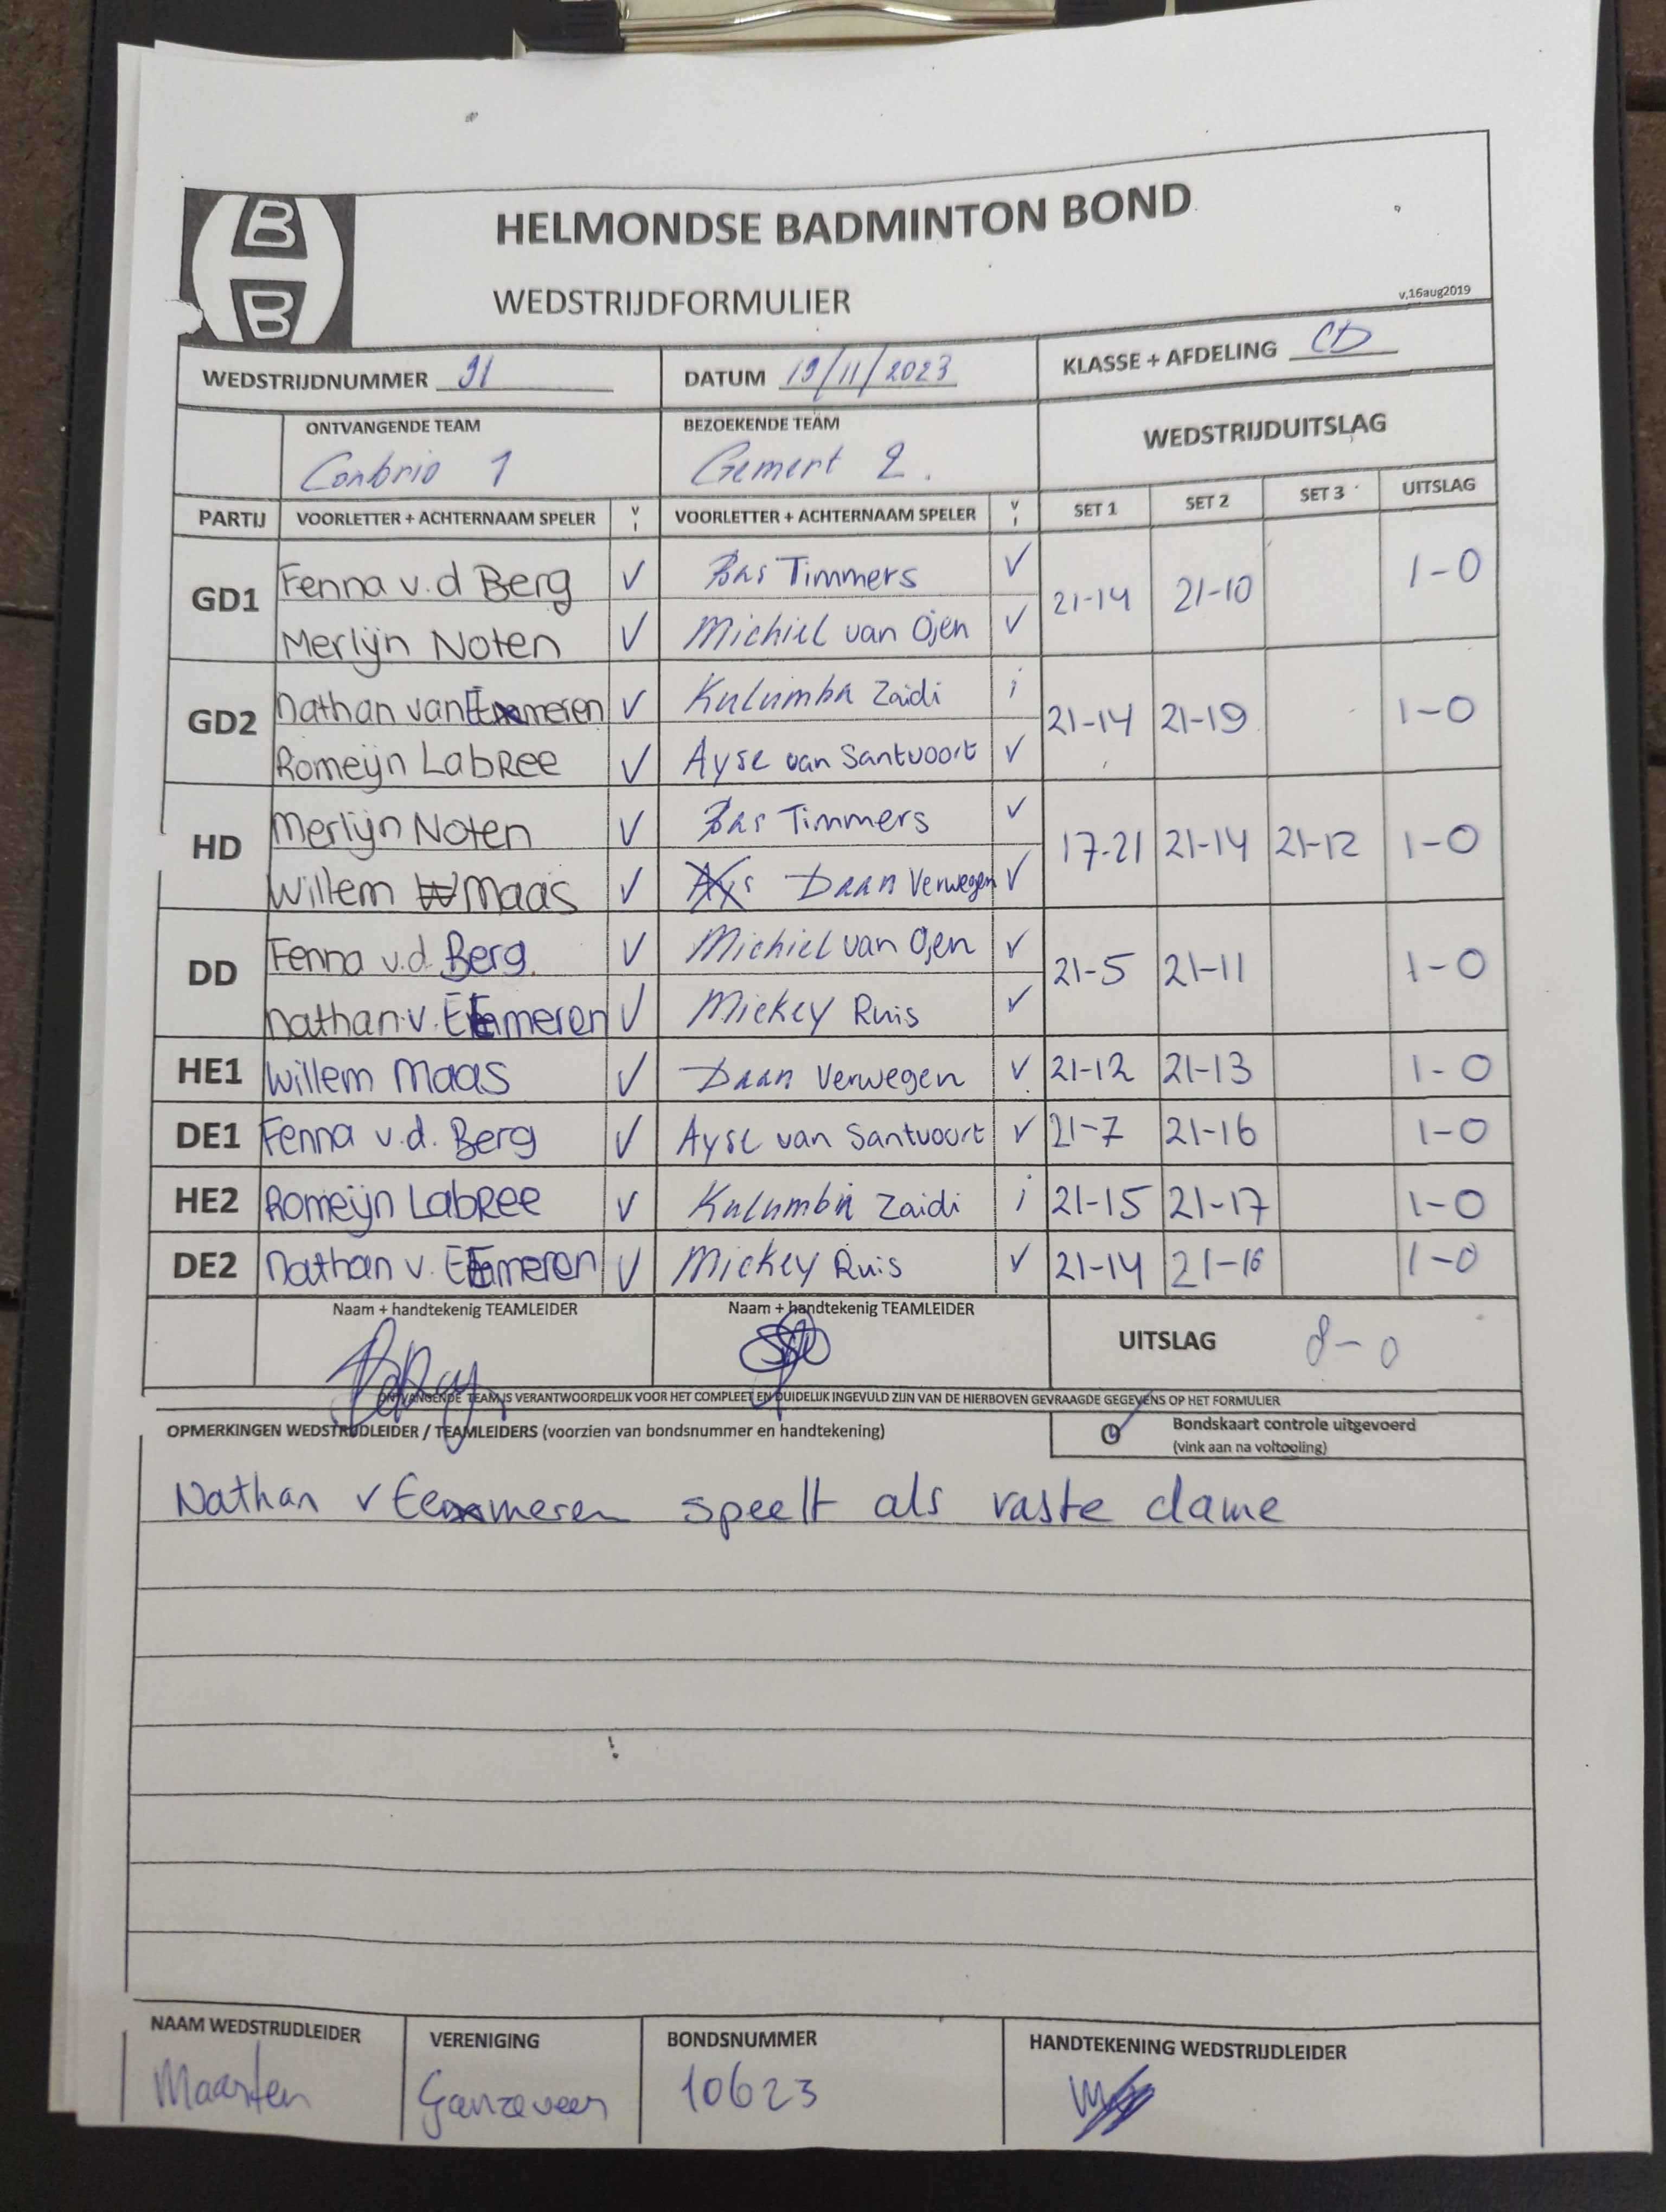 B
B
HELMONDSE BADMINTON BOND
WEDSTRIJDFORMULIER
v,16aug2019
WEDSTRIJDNUMMER 91 DATUM 19/11/2023 KLASSE + AFDELING CD
ONTVANGENDE TEAM BEZOEKENDE TEAM WEDSTRIJDUITSLAG
Conbrio 1 Gemert 2.
PARTIJ VOORLETTER + ACHTERNAAM SPELER V I VOORLETTER + ACHTERNAAM SPELER V I SET 1 SET 2 SET 3 UITSLAG
GD1 Fenna v.d Berg V Bas Timmers V 21-14 21-10 1-0
Merlijn Noten V Michiel van Ojen V
GD2 Nathan van Eemeren V Kulumba Zaidi i 21-14 21-19 1-0
Romeijn LabRee V Ayse van Santvoort V
HD Merlijn Noten V Bas Timmers V 17-21 21-14 21-12 1-0
Willem Maas V Daan Verwegen V
DD Fenna v.d. Berg. V Michiel van Ojen V 21-5 21-11 1-0
Nathan v. Eemeren V Mickey Ruis V
HE1 Willem Maas V Daan Verwegen V 21-12 21-13 1-0
DE1 Fenna v.d. Berg V Ayse van Santvoort V 21-7 21-16 1-0
HE2 Romeijn LabRee V Kulumba Zaidi i 21-15 21-17 1-0
DE2 Nathan v. Eemeren V Mickey Ruis V 21-14 21-16 1-0
Naam + handtekenig TEAMLEIDER Naam + handtekenig TEAMLEIDER UITSLAG 8-0
ONTVANGENDE TEAM IS VERANTWOORDELIJK VOOR HET COMPLEET EN DUIDELIJK INGEVULD ZIJN VAN DE HIERBOVEN GEVRAAGDE GEGEVENS OP HET FORMULIER
OPMERKINGEN WEDSTRIJDLEIDER / TEAMLEIDERS (voorzien van bondsnummer en handtekening) Bondskaart controle uitgevoerd
(vink aan na voltooiing)
Nathan v Eemeren speelt als vaste dame
NAAM WEDSTRIJDLEIDER VERENIGING BONDSNUMMER HANDTEKENING WEDSTRIJDLEIDER
Maarten Ganzeveer 10623